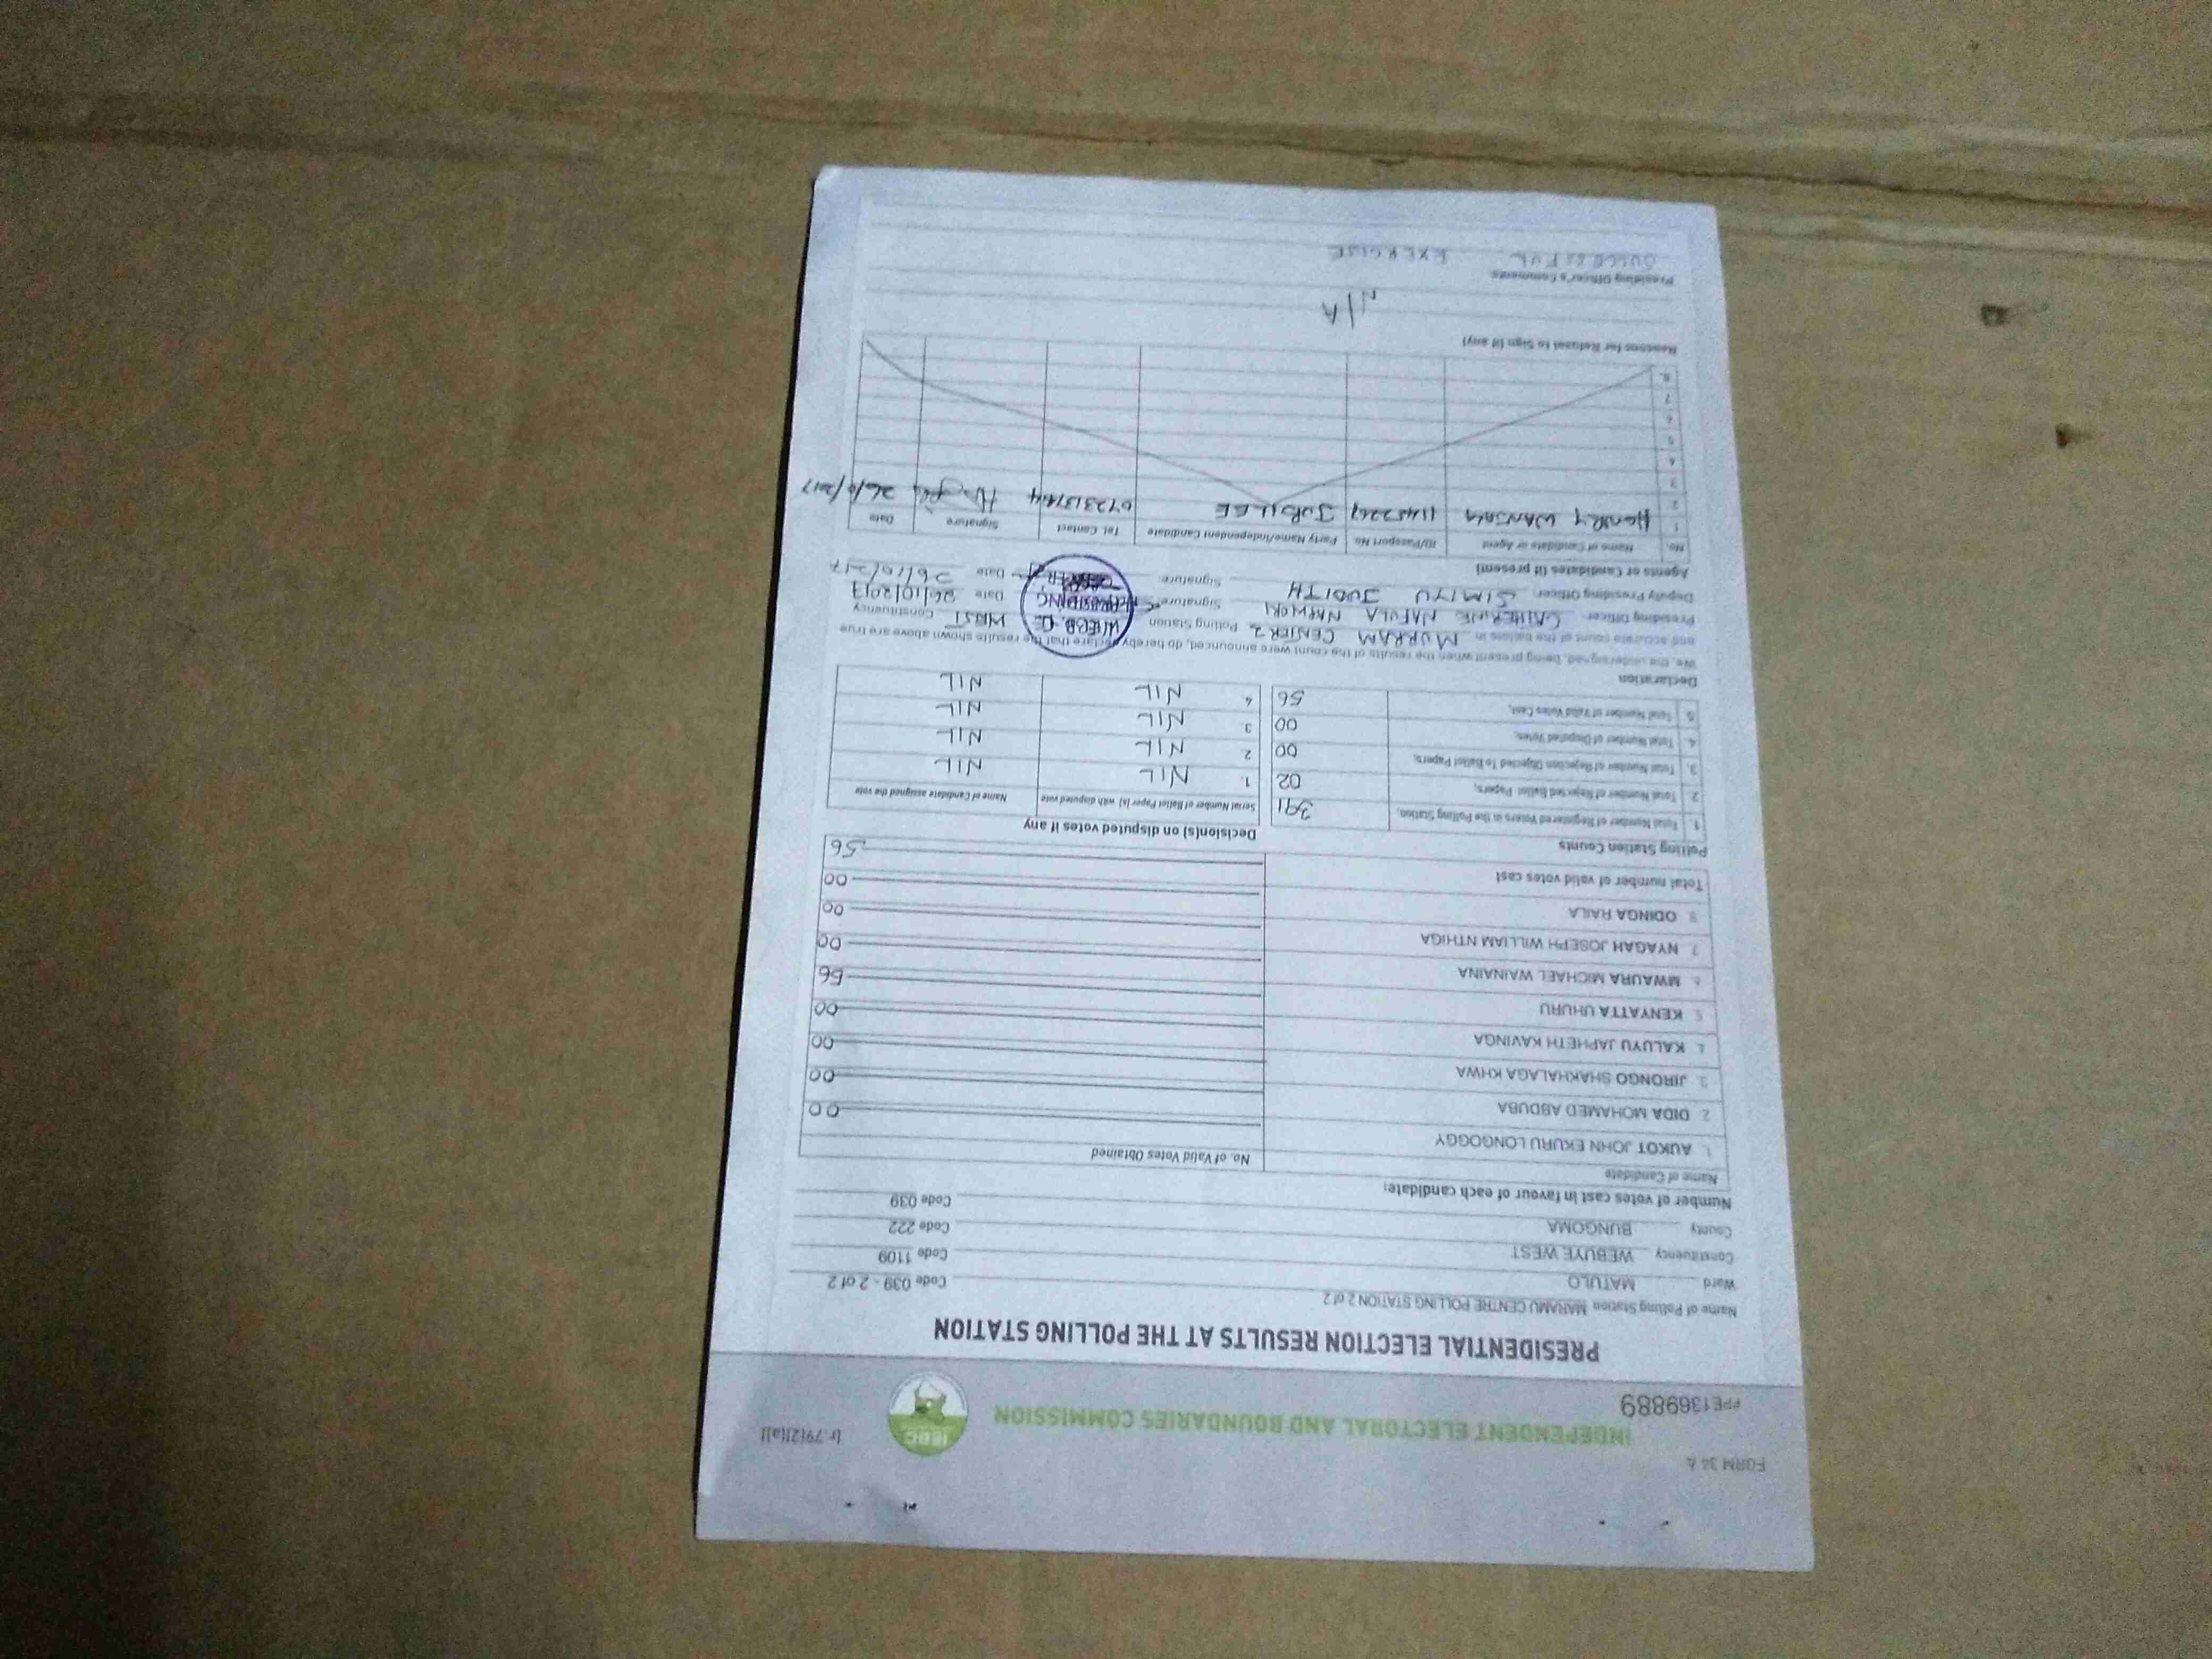 FORM 34 A
INDEPENDENT ELECTORAL AND BOUNDARIES COMMISSION
IEBC
(r. 79(2)(a))
PPE1369889
PRESIDENTIAL ELECTION RESULTS AT THE POLLING STATION
Name of Polling Station MARAMU CENTRE POLLING STATION 2 of 2 Code 039 - 2 of 2
Ward MATULO Code 1109
Constituency WEBUYE WEST Code 222
County BUNGOMA Code 039
Number of votes cast in favour of each candidate:
Name of Candidate No. of Valid Votes Obtained
1. AUKOT JOHN EKURU LONGOGGY 00
2. DIDA MOHAMED ABDUBA 00
3. JIRONGO SHAKHALAGA KHWA 00
4. KALUYU JAPHETH KAVINGA 00
5. KENYATTA UHURU 56
6. MWAURA MICHAEL WAINAINA 00
7. NYAGAH JOSEPH WILLIAM NTHIGA 00
8. ODINGA RAILA 00
Total number of valid votes cast 56
Polling Station Counts
1. Total Number of Registered Voters in the Polling Station, 391
2. Total Number of Rejected Ballot Papers, 02
3. Total Number of Rejection Objected To Ballot Papers, 00
4. Total Number of Disputed Votes, 00
5. Total Number of Valid Votes Cast, 56
Decision(s) on disputed votes if any
Serial Number of Ballot Paper (s) with disputed vote Name of Candidate assigned the vote
1. NIL NIL
2 NIL NIL
3 NIL NIL
4 NIL NIL
Declaration
We, the undersigned, being present when the results of the count were announced, do hereby declare that the results shown above are true
and accurate count of the ballots in MURRAM CENTER 2 Polling Station WEST Constituency
Presiding Officer: CATHERINE NAFULA Signature Date 26/10/2017
Deputy Presiding Officer: SIMIYU JUDITH Signature: Date 26/10/2017
PRESIDING
Agents or Candidates (if present)
No. Name of Candidate or Agent ID/Passport No. Party Name/Independent Candidate Tel. Contact Signature Date
1 HENRY WANJALA JUBILEE 26/10/2017
2
3
4
5
6
7
8
Reasons for Refusal to Sign (if any)
N/A
Presiding Officer's Comments
SUCCESSFUL EXERCISE